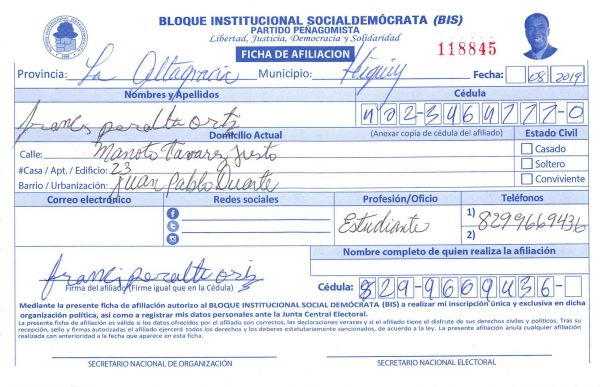 BLOQUE INSTITUCIONAL SOCIALDEMÓCRATA (BIS)
PARTIDO PEÑAGOMISTA
Libertad, Justicia, Democracia y Solidaridad
FICHA DE AFILIACION
118845
Provincia: La Altagracia Municipio: Higüey Fecha: 08 2019
Nombres y Apellidos Cédula
francis peralta ortiz 402-3464777-0
Domicilio Actual (Anexar copia de cédula del afiliado) Estado Civil
Calle: Manolo Tavarez Justo Casado
#Casa / Apt. / Edificio: 23 Soltero
Barrio / Urbanización: Juan Pablo Duarte Conviviente
Correo electrónico Redes sociales Profesión/Oficio Teléfonos
Estudiante 1) 8299669436
2)
Nombre completo de quien realiza la afiliación
francis peralta ortiz
Firma del afiliado (Firme igual que en la Cédula) Cédula: 829-9669436-
Mediante la presente ficha de afiliación autorizo al BLOQUE INSTITUCIONAL SOCIAL DEMÓCRATA (BIS) a realizar mi inscripción única y exclusiva en dicha
organización política, así como a registrar mis datos personales ante la Junta Central Electoral.
La presente ficha de afiliación es válida si los datos ofrecidos por el afiliado son correctos, las declaraciones veraces y si el afiliado tiene el disfrute de sus derechos civiles y políticos. Tras su
recepción, sello y firmas autorizadas el afiliado ejercerá todos los derechos y los deberes estatutariamente sancionados, de acuerdo a la ley. La presente afiliación anula cualquier afiliación
realizada con anterioridad a la fecha que aparece en esta ficha.
SECRETARIO NACIONAL DE ORGANIZACIÓN SECRETARIO NACIONAL ELECTORAL